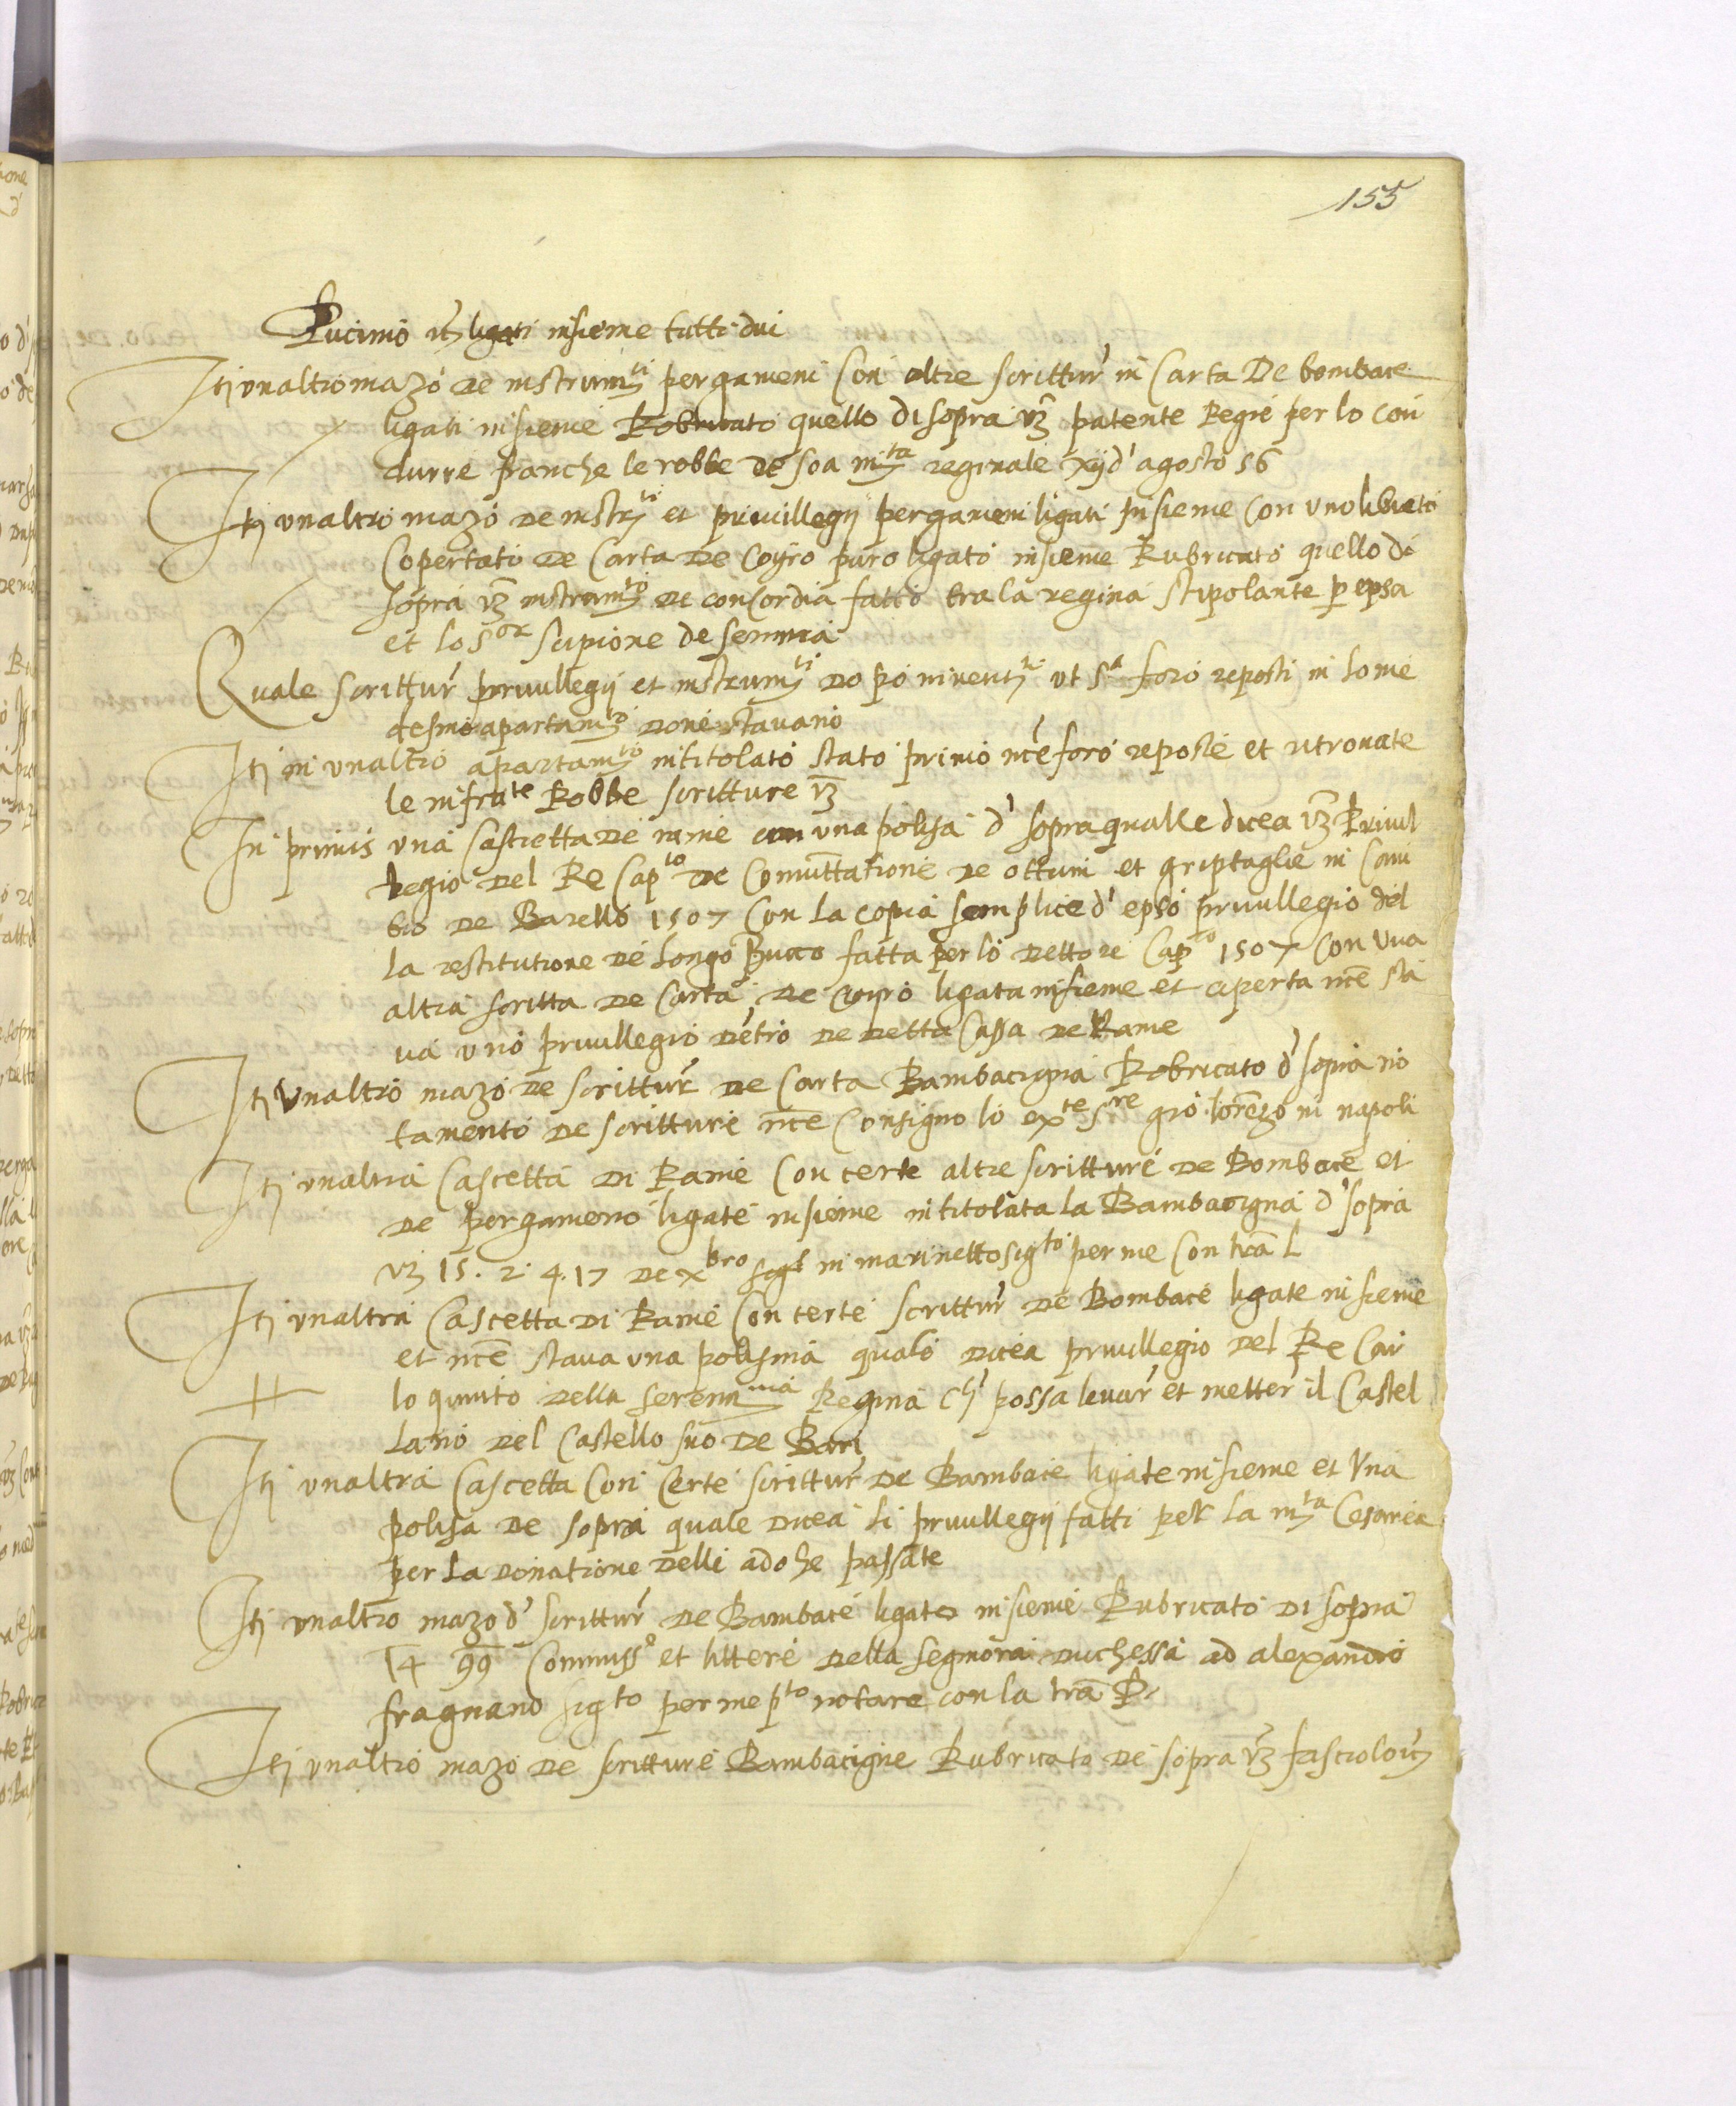 155
Pucinio ligati insieme tutti dui
Itj unaltro mazo de instrumti pergameni con altre scrittur in carta de bombace
ligati insieme Robricato quello disopra vz patente Regie per lo con
durre franche le robbe de soa mta reginale xij d'agosto 56
Itj unaltro mazo de instrti et privillegij pergameni ligati insieme con uno libreto
copertato de carta de coyro puro ligato insieme Rubricato quello de
sopra vz instrumto de concordia fatto tra la regina stipolante p epsa
et lo Sor scipione de
Quale scrittur privillegij et instrumti dopo inventti ut sa foro reposti in lo me
desmo apartamto dove stavano
Itj in unaltro apartamto intitolato stato primo nce foro reposte et ritrovate
le infrate Robbe scritture vz
In primis una cascietta de rame con una polisa d' sopra qualle dicea vz Privil
legio del Re Capto de Comuttatione de ottuni et griptaglie in Cam
bio de Barello 1507 con la copia semplice d' epso privillegio del
la restitutione de Longo Bucco fatta per lo dettore Capto 1507 con una
altra scritta de carta de coyro ligata insieme et aperta nce sta
va uno privillegio detro de detta cassa de Rame
Itj Unaltro mazo de scrittur de Carta Bambacigna Robricato d' sopra no
tamento de scritture nce consigno lo exte Sre gio lorenzo in napoli
Itj unaltra Cascetta di Rame con certe altre scritture de Bombace et
de pergameno ligate insieme intitolata la Bambacigna d' sopra
vz 15. 2. 4. 17 de xbro in marinetto sigto per me con lra L
Itj unaltra Cascetta di Rame con certe scrittur de Bombace ligate insieme
et nce stava una polisina quale dicea privillegio del Re Car
lo quinto della serenma Regina ch possa levar et metter il Castel
lano del Castello suo de Bari
Itj unaltra Cascetta con certe scrittur de Bambace ligate insieme et Una
polisa de sopra quale dicea li privillegij fatti per la mta Cesarea
per la donatione delli adohe passate
Itj unaltro mazo d' scrittur de Bambace ligato insieme Rubricato di sopra
14 99 Commisse et littere della segnora duchessa ad alexandro
fragnano sigto per me pto notare con la lra P.
Itj unaltro mazo de scritture Bambacigne Rubricato de sopra vz fasciolo